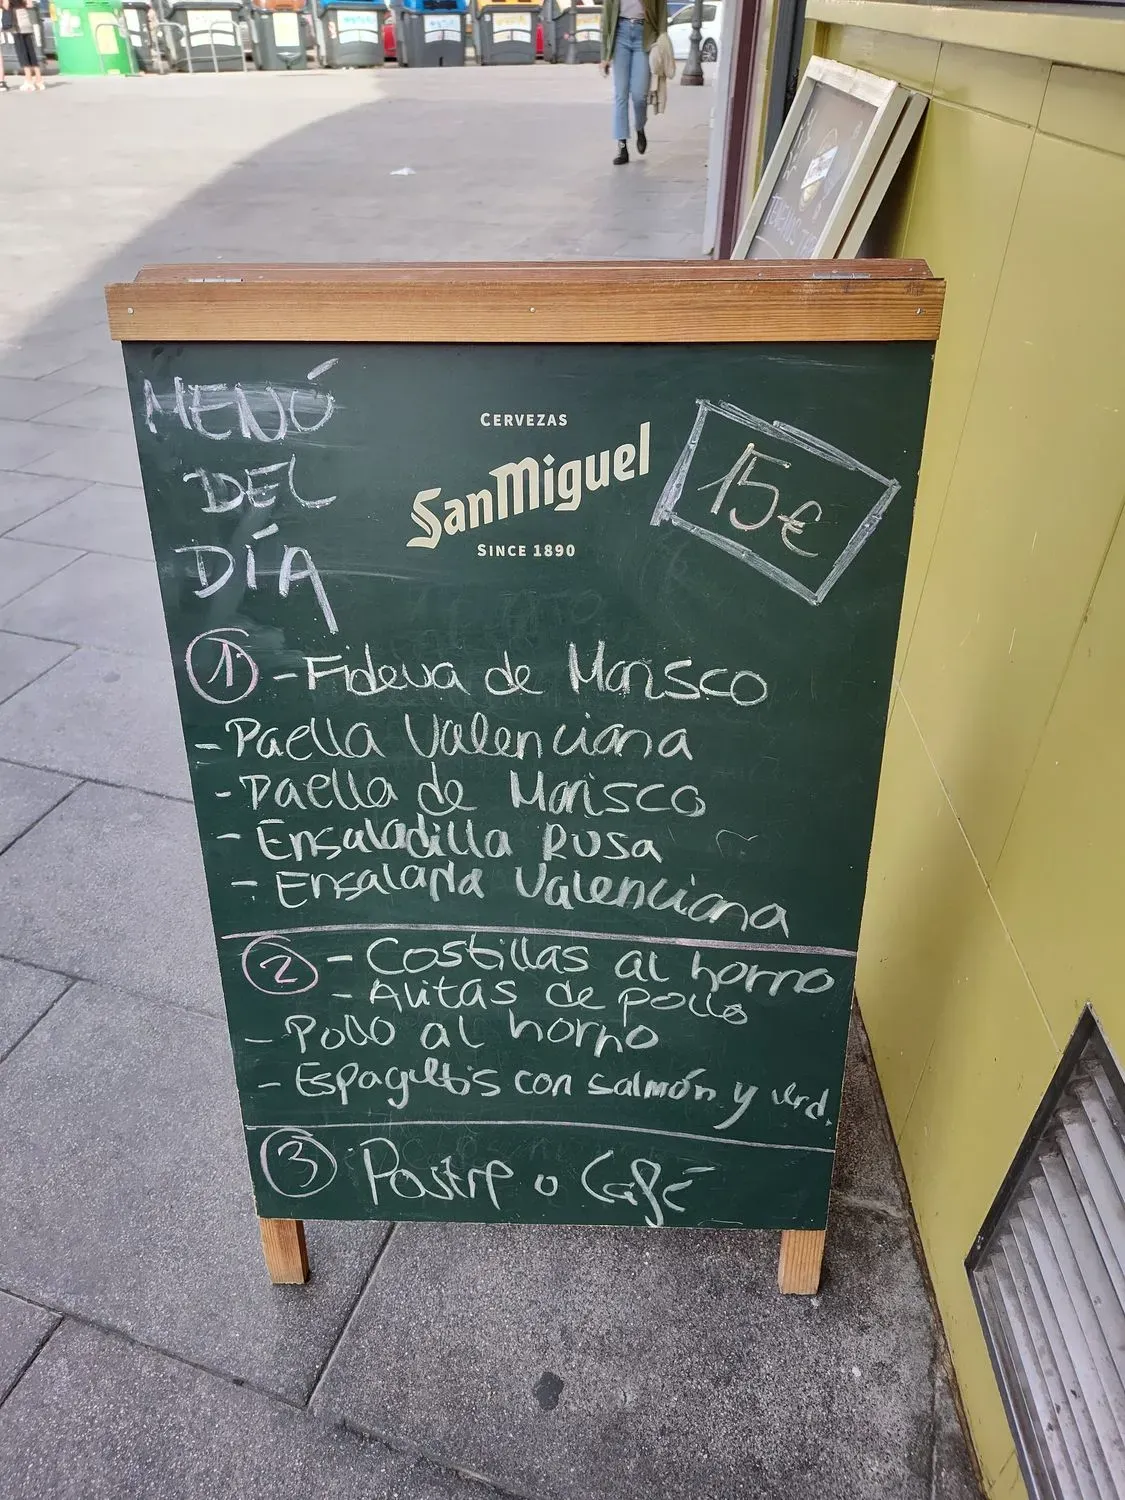 MENÚ
DEL
DÍA
CERVEZAS
SanMiguel
SINCE 1890
15€
1 - Fideua de Marisco
- Paella Valenciana
- Paella de Marisco
- Ensaladilla Rusa
- Ensalada Valenciana
2 - Costillas al horno
- Alitas de pollo
- Pollo al horno
- Espaguetis con salmón y verd.
3 Postre o Café